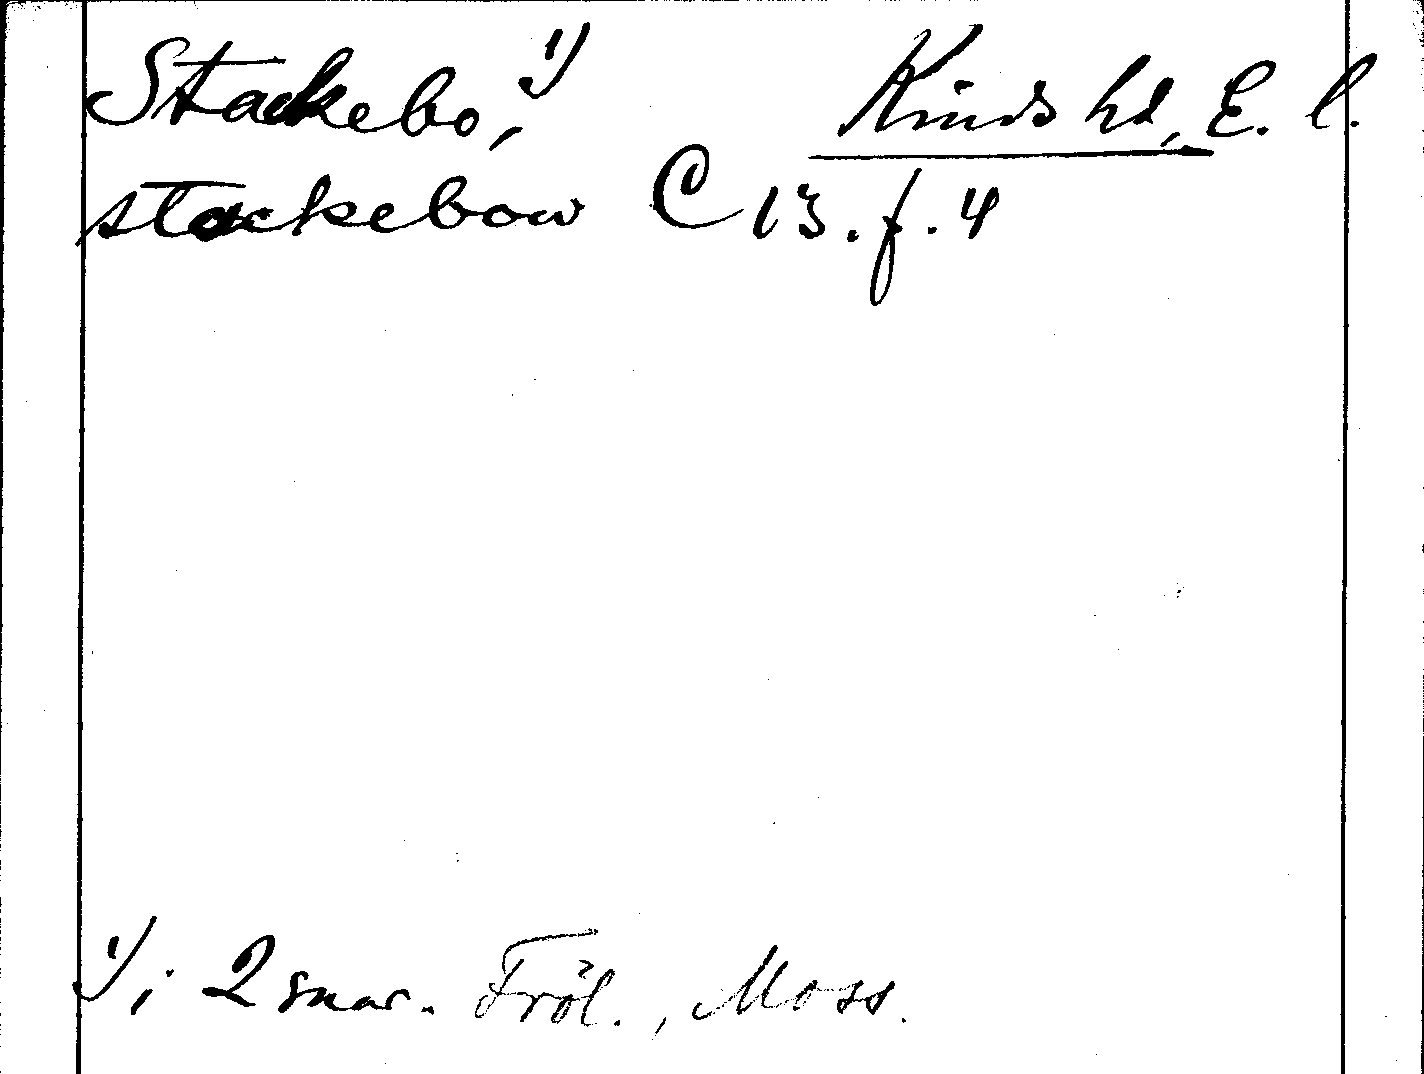 Stackebo,¹⁾ Kinds hd, E. l.
stackebow C 13. f. 4
¹⁾ i 2 snar. Fröl., Moss.